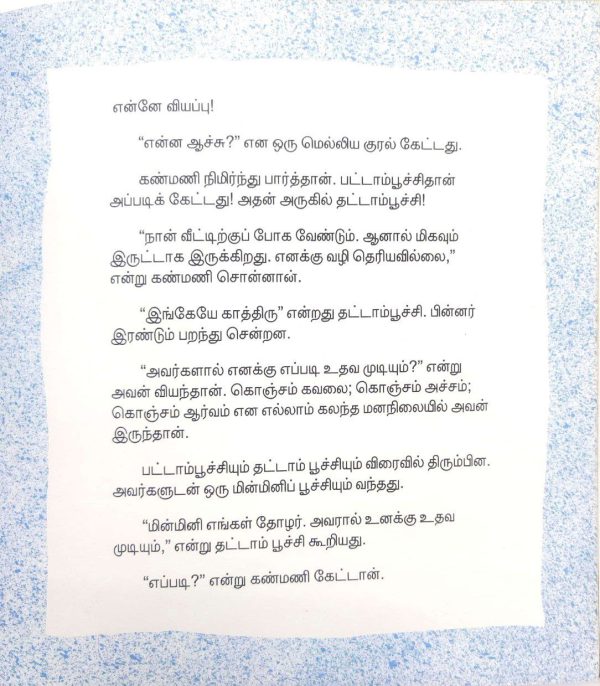 என்னே வியப்பு!
“என்ன ஆச்சு?” என ஒரு மெல்லிய குரல் கேட்டது.
கண்மணி நிமிர்ந்து பார்த்தான். பட்டாம்பூச்சிதான்
அப்படிக் கேட்டது! அதன் அருகில் தட்டாம்பூச்சி!
“நான் வீட்டிற்குப் போக வேண்டும். ஆனால் மிகவும்
இருட்டாக இருக்கிறது. எனக்கு வழி தெரியவில்லை,”
என்று கண்மணி சொன்னான்.
“இங்கேயே காத்திரு” என்றது தட்டாம்பூச்சி. பின்னர்
இரண்டும் பறந்து சென்றன.
“அவர்களால் எனக்கு எப்படி உதவ முடியும்?” என்று
அவன் வியந்தான். கொஞ்சம் கவலை; கொஞ்சம் அச்சம்;
கொஞ்சம் ஆர்வம் என எல்லாம் கலந்த மனநிலையில் அவன்
இருந்தான்.
பட்டாம்பூச்சியும் தட்டாம் பூச்சியும் விரைவில் திரும்பின.
அவர்களுடன் ஒரு மின்மினிப் பூச்சியும் வந்தது.
“மின்மினி எங்கள் தோழர். அவரால் உனக்கு உதவ
முடியும்,” என்று தட்டாம் பூச்சி கூறியது.
“எப்படி?” என்று கண்மணி கேட்டான்.